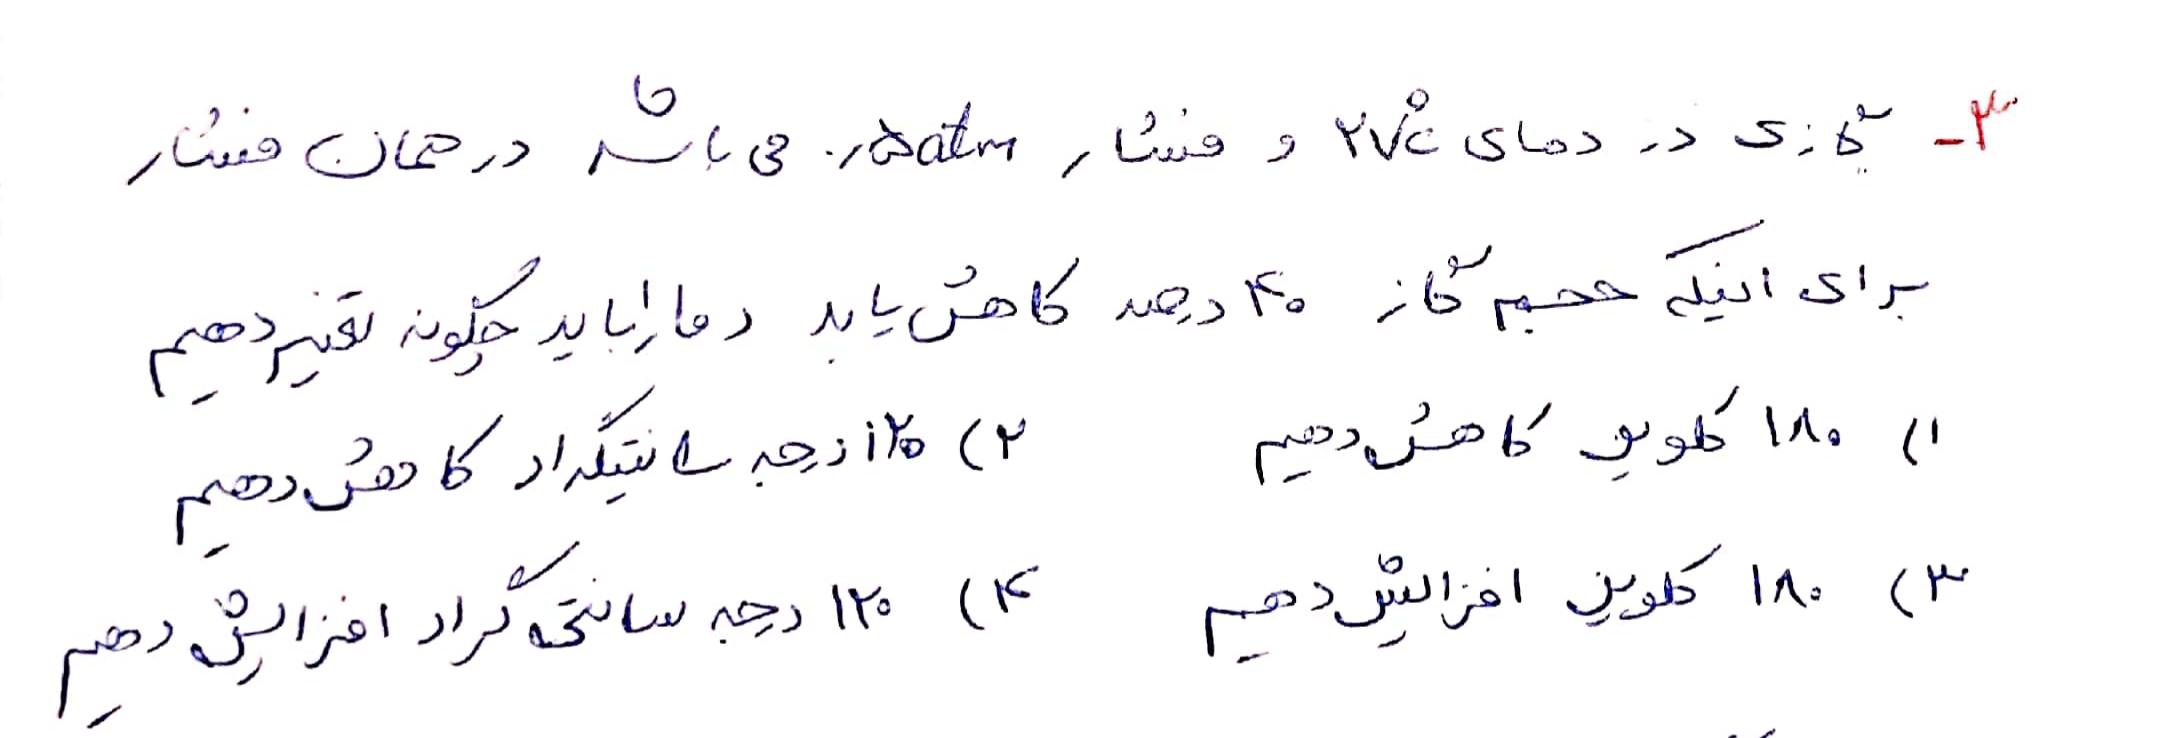 ۳- گازی در دمای ۲۷°c و فشار ۰٫۵atm می باشد در همان فشار
برای اینکه حجم گاز ۴۰ درصد کاهش یابد دما را باید چگونه تغییر دهیم
۱) ۱۸۰ کلوین کاهش دهیم ۲) ۱۲۰ درجه سانتیگراد کاهش دهیم
۳) ۱۸۰ کلوین افزایش دهیم ۴) ۱۲۰ درجه سانتی گراد افزایش دهیم